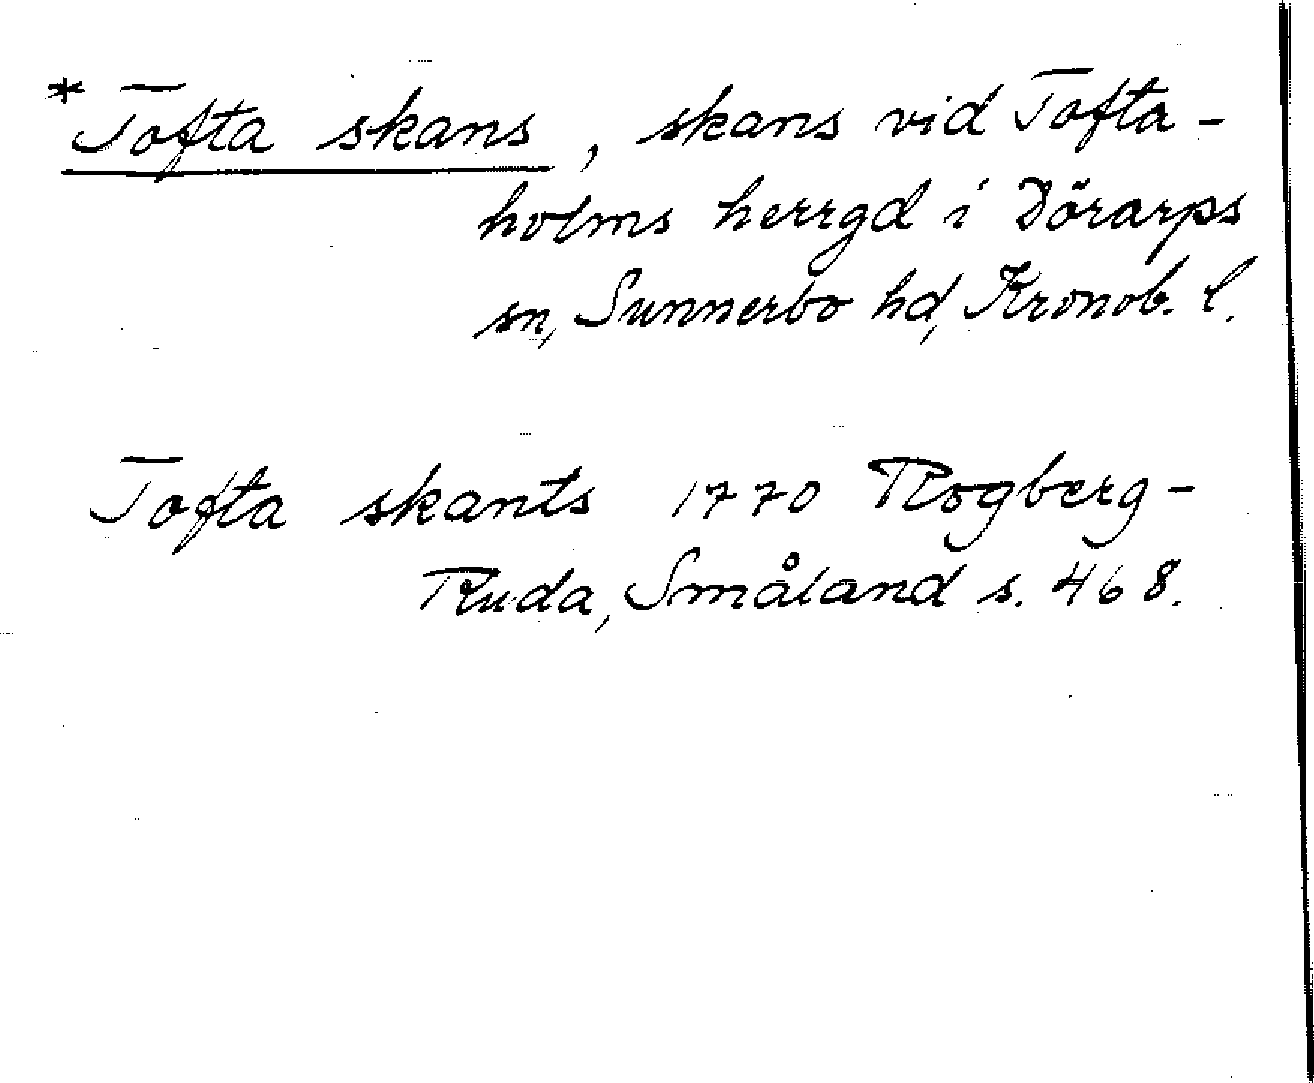 *Tofta skans, skans vid Tofta-
holms herrgd i Dörarps
sn, Sunnerbo hd, Kronob. l.
Tofta skants 1770 Rogberg-
Ruda, Småland s. 468.